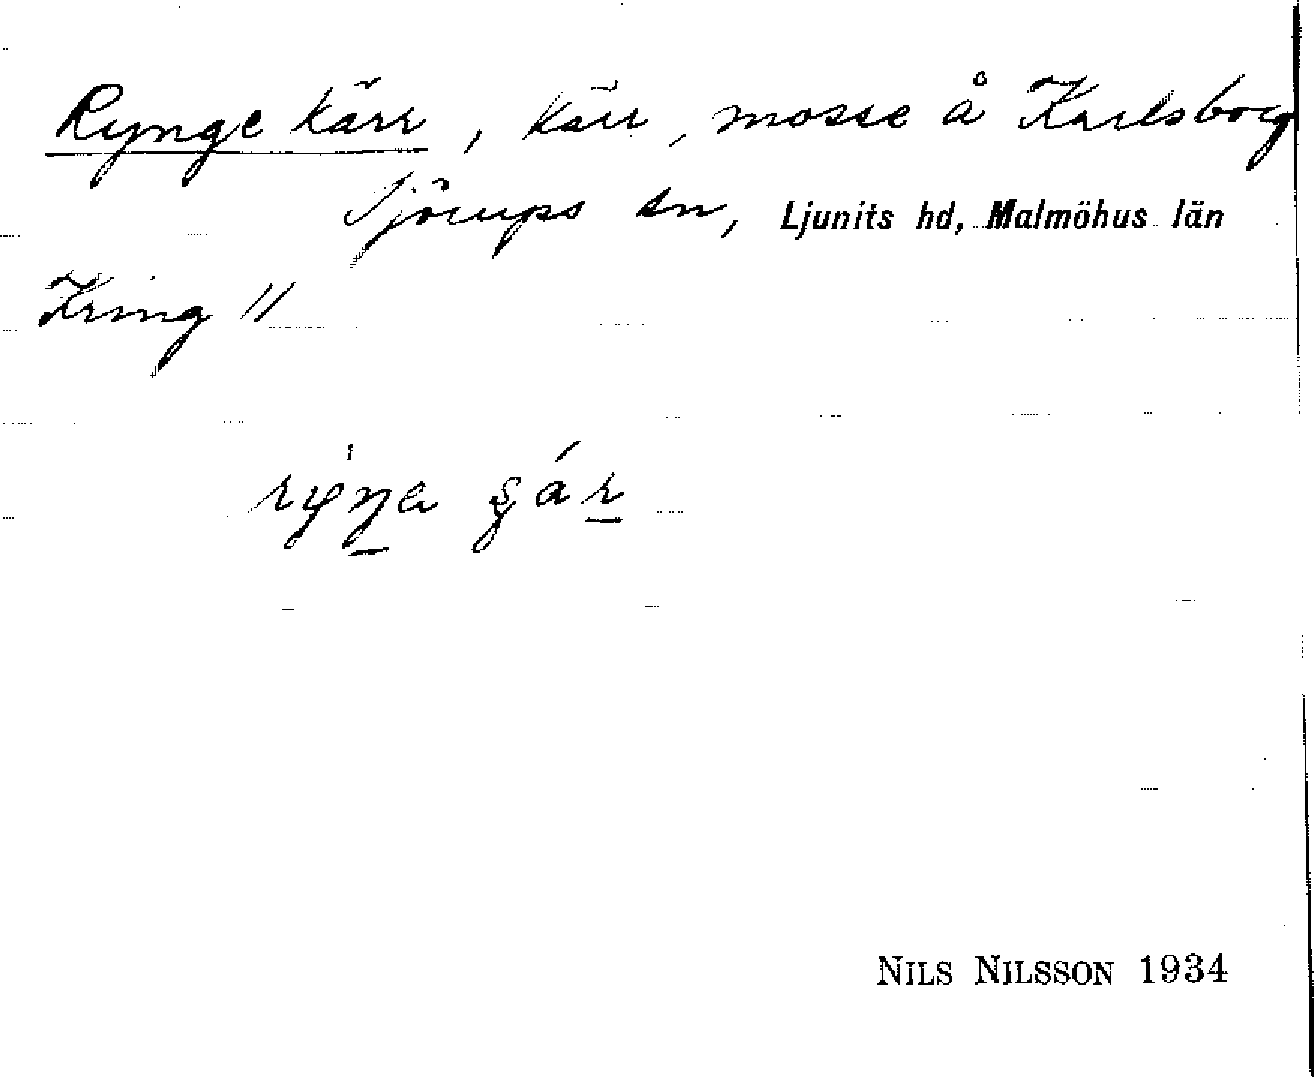 Rynge kärr, kärr, mosse å Karlsborg
Sjörups sn, Ljunits hd, Malmöhus län
Kring 11
ryŋa gár
NILS NILSSON 1934